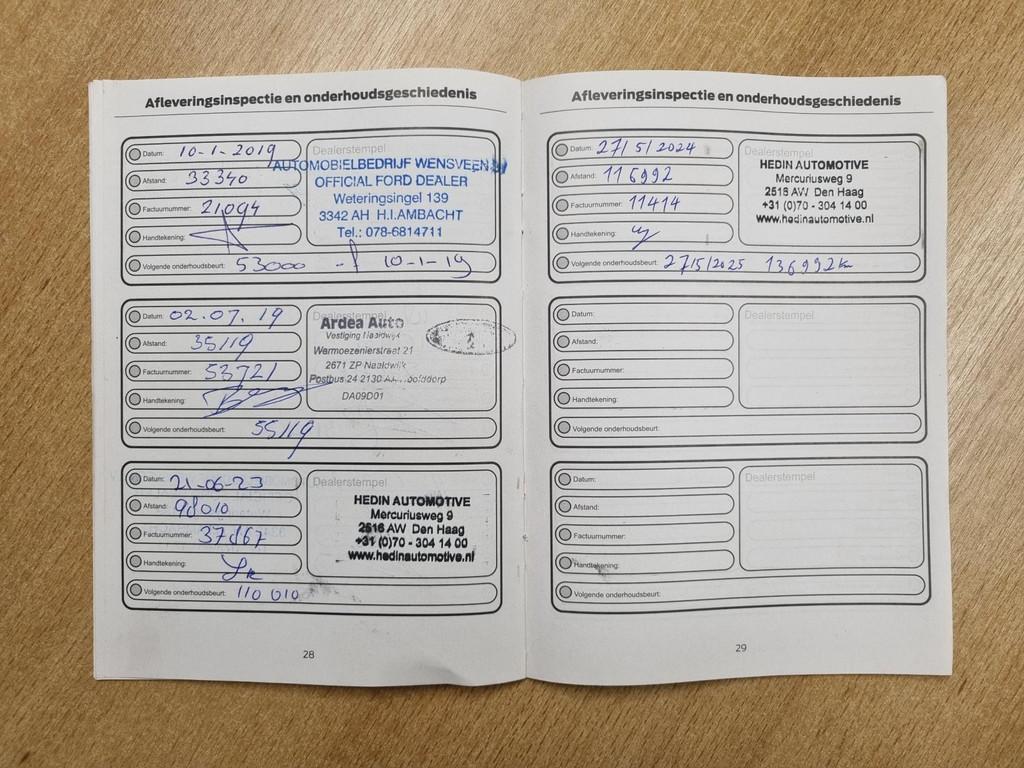 Afleveringsinspectie en onderhoudsgeschiedenis
Datum: 10-1-2019
Afstand: 33340
Factuurnummer: 21094
Handtekening:
Volgende onderhoudsbeurt: 53000 - 10-1-19
Dealerstempel
AUTOMOBIELBEDRIJF WENSVEEN
OFFICIAL FORD DEALER
Weteringsingel 139
3342 AH H.I.AMBACHT
Tel.: 078-6814711
Datum: 02.07.19
Afstand: 35119
Factuurnummer: 53721
Handtekening:
Volgende onderhoudsbeurt: 55119
Dealerstempel
Ardea Auto
Vestiging Naaldwijk
Warmoezenierstraat 21
2671 ZP Naaldwijk
Postbus 24 2130
DA09D01
Datum: 21-06-23
Afstand: 98010
Factuurnummer: 37867
Handtekening:
Volgende onderhoudsbeurt: 110 010
Dealerstempel
HEDIN AUTOMOTIVE
Mercuriusweg 9
2516 AW Den Haag
+31 (0)70 - 304 14 00
www.hedinautomotive.nl
28
Afleveringsinspectie en onderhoudsgeschiedenis
Datum: 27/5/2024
Afstand: 116992
Factuurnummer: 11414
Handtekening:
Volgende onderhoudsbeurt: 27/5/2025 136992km
Dealerstempel
HEDIN AUTOMOTIVE
Mercuriusweg 9
2516 AW Den Haag
+31 (0)70 - 304 14 00
www.hedinautomotive.nl
Datum:
Afstand:
Factuurnummer:
Handtekening:
Volgende onderhoudsbeurt:
Dealerstempel
Datum:
Afstand:
Factuurnummer:
Handtekening:
Volgende onderhoudsbeurt:
Dealerstempel
29